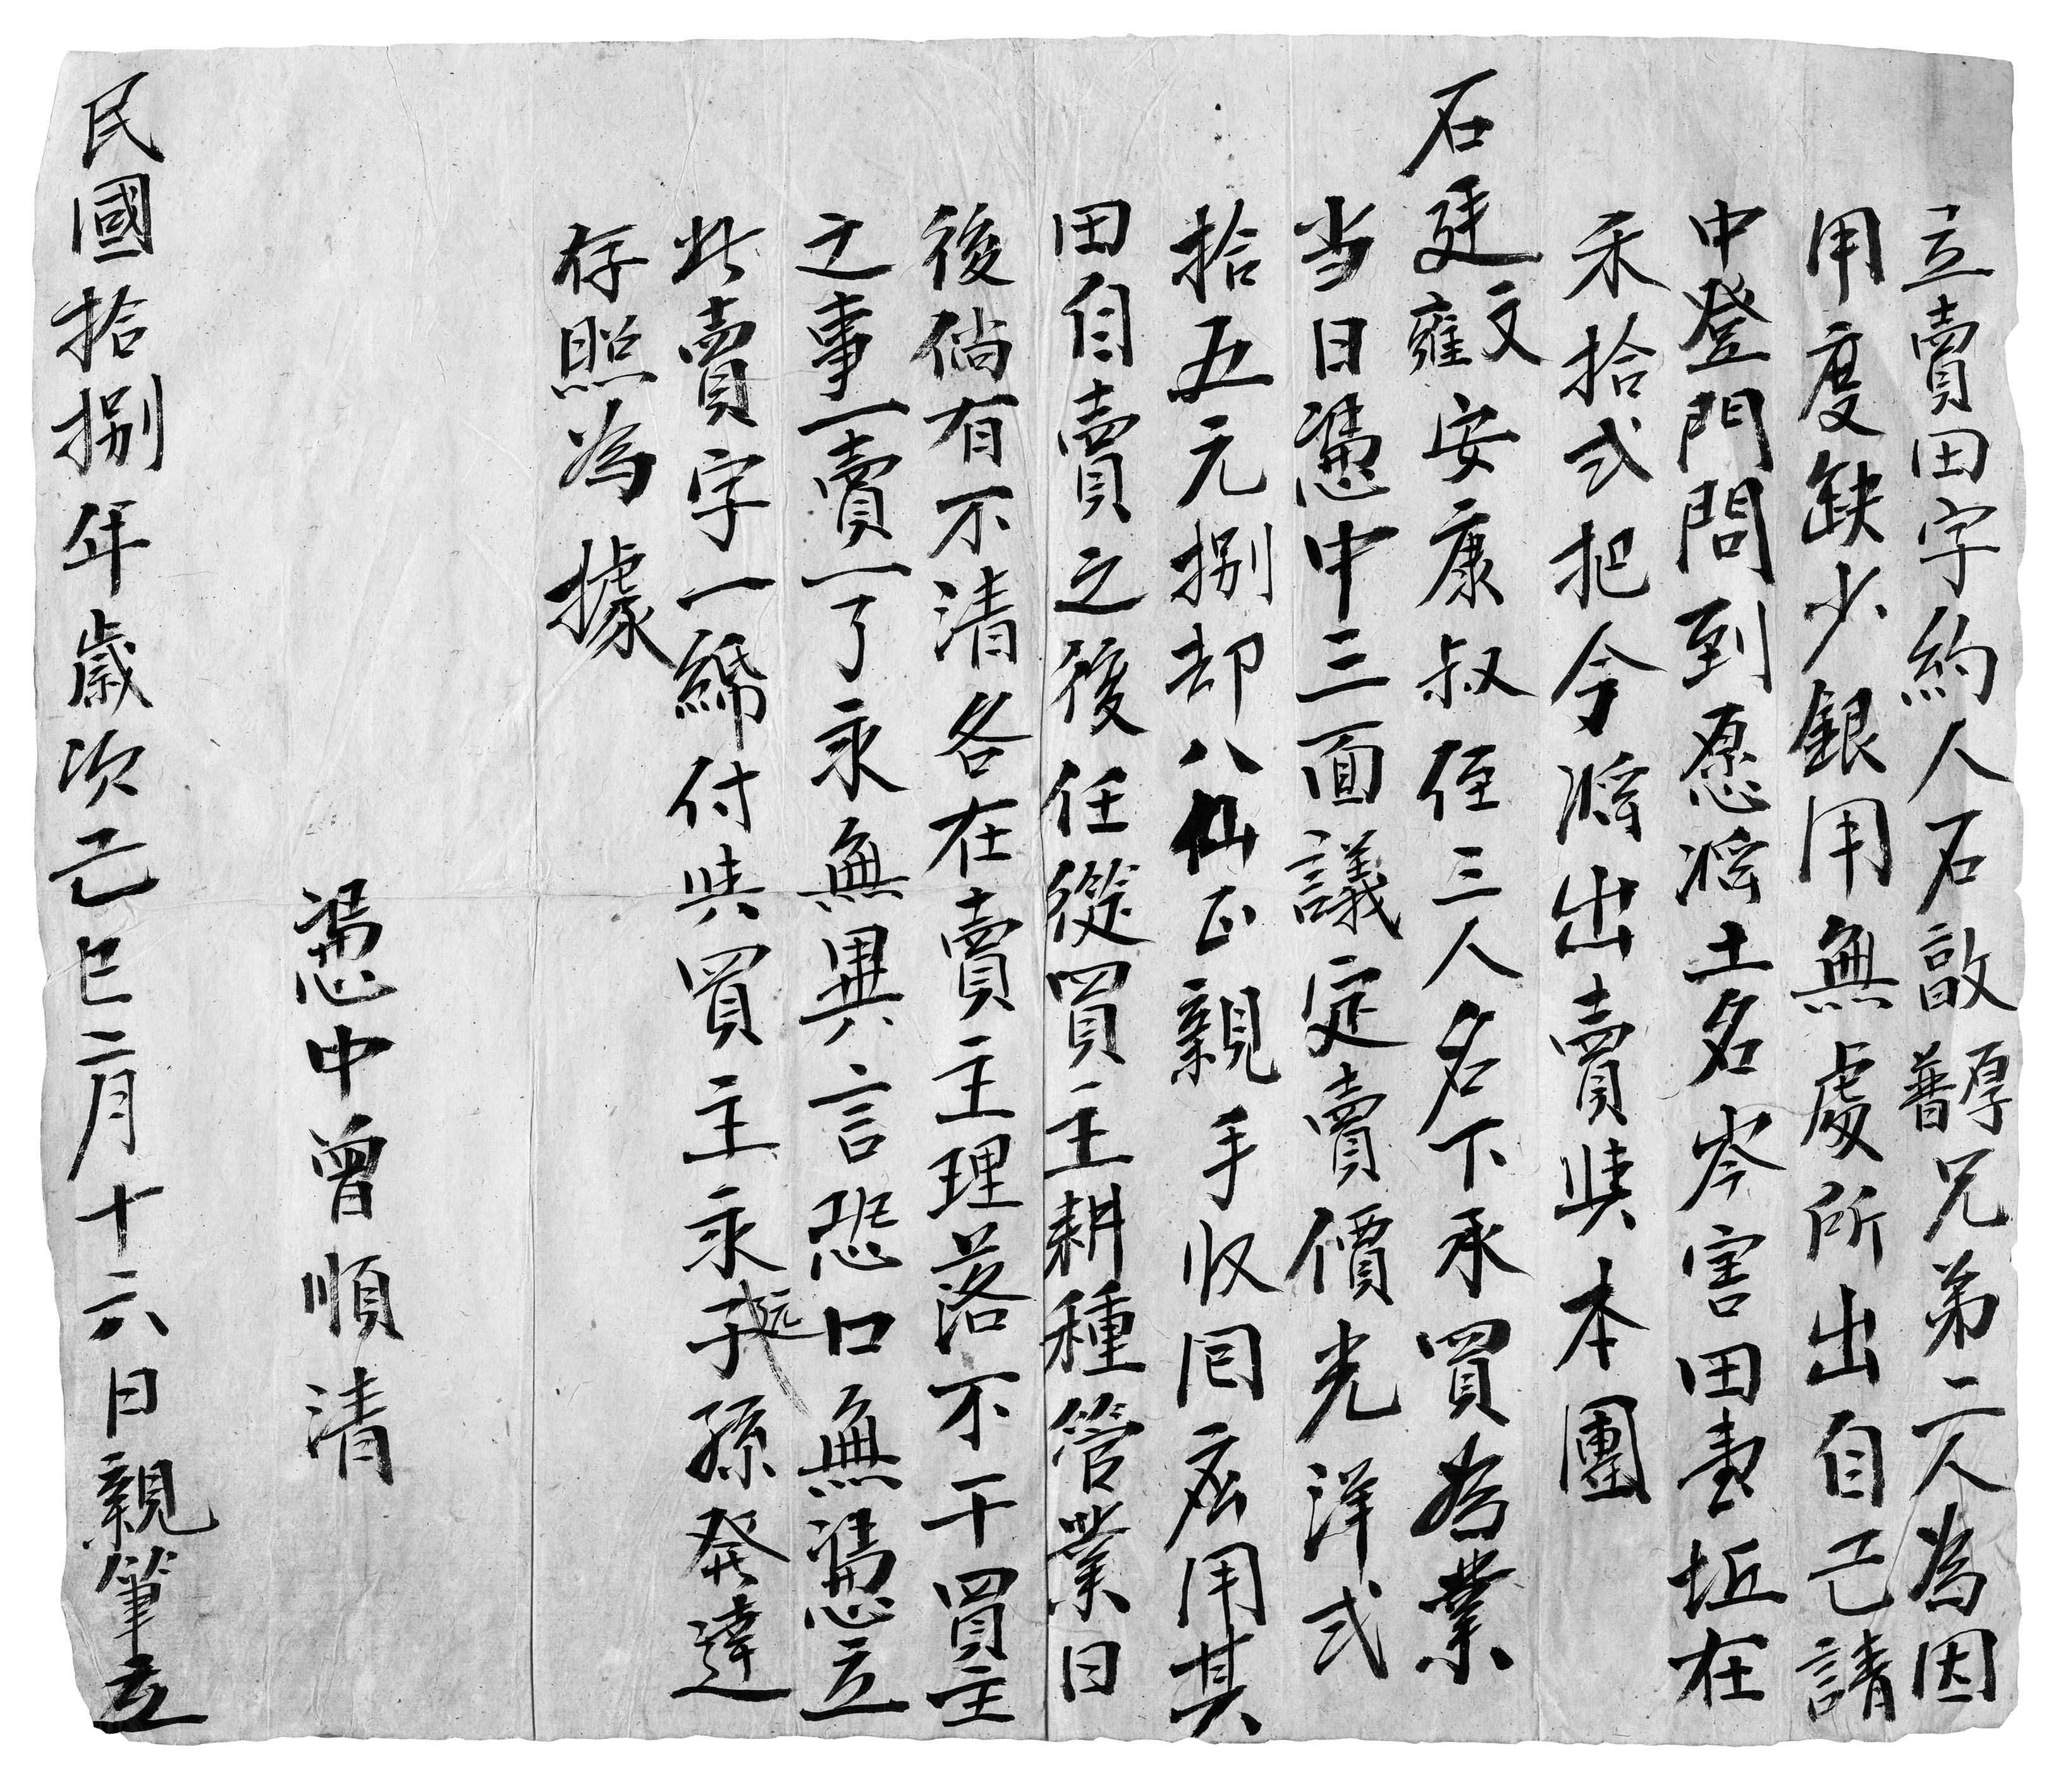 立賣田字約人石敔厚普兄弟二人為因
用度缺少銀用無處所出自己請
中登門問到愿將土名岑害田壹坵在
禾拾弍把今將出賣與本團
石廷文雍安康叔侄三人名下承買為業
当日憑中三面議定賣價光洋弍
拾五元捌却八仙正親手收回應用其
田自賣之後任從買主耕種管業日
後倘有不清各在賣主理落不干買主
之事一賣一了永無異言恐口無憑立
此賣字一紙付與買主永遠子孫發達
存照為據
憑中曾順清
民國拾捌年歲次己巳二月十六日親筆立